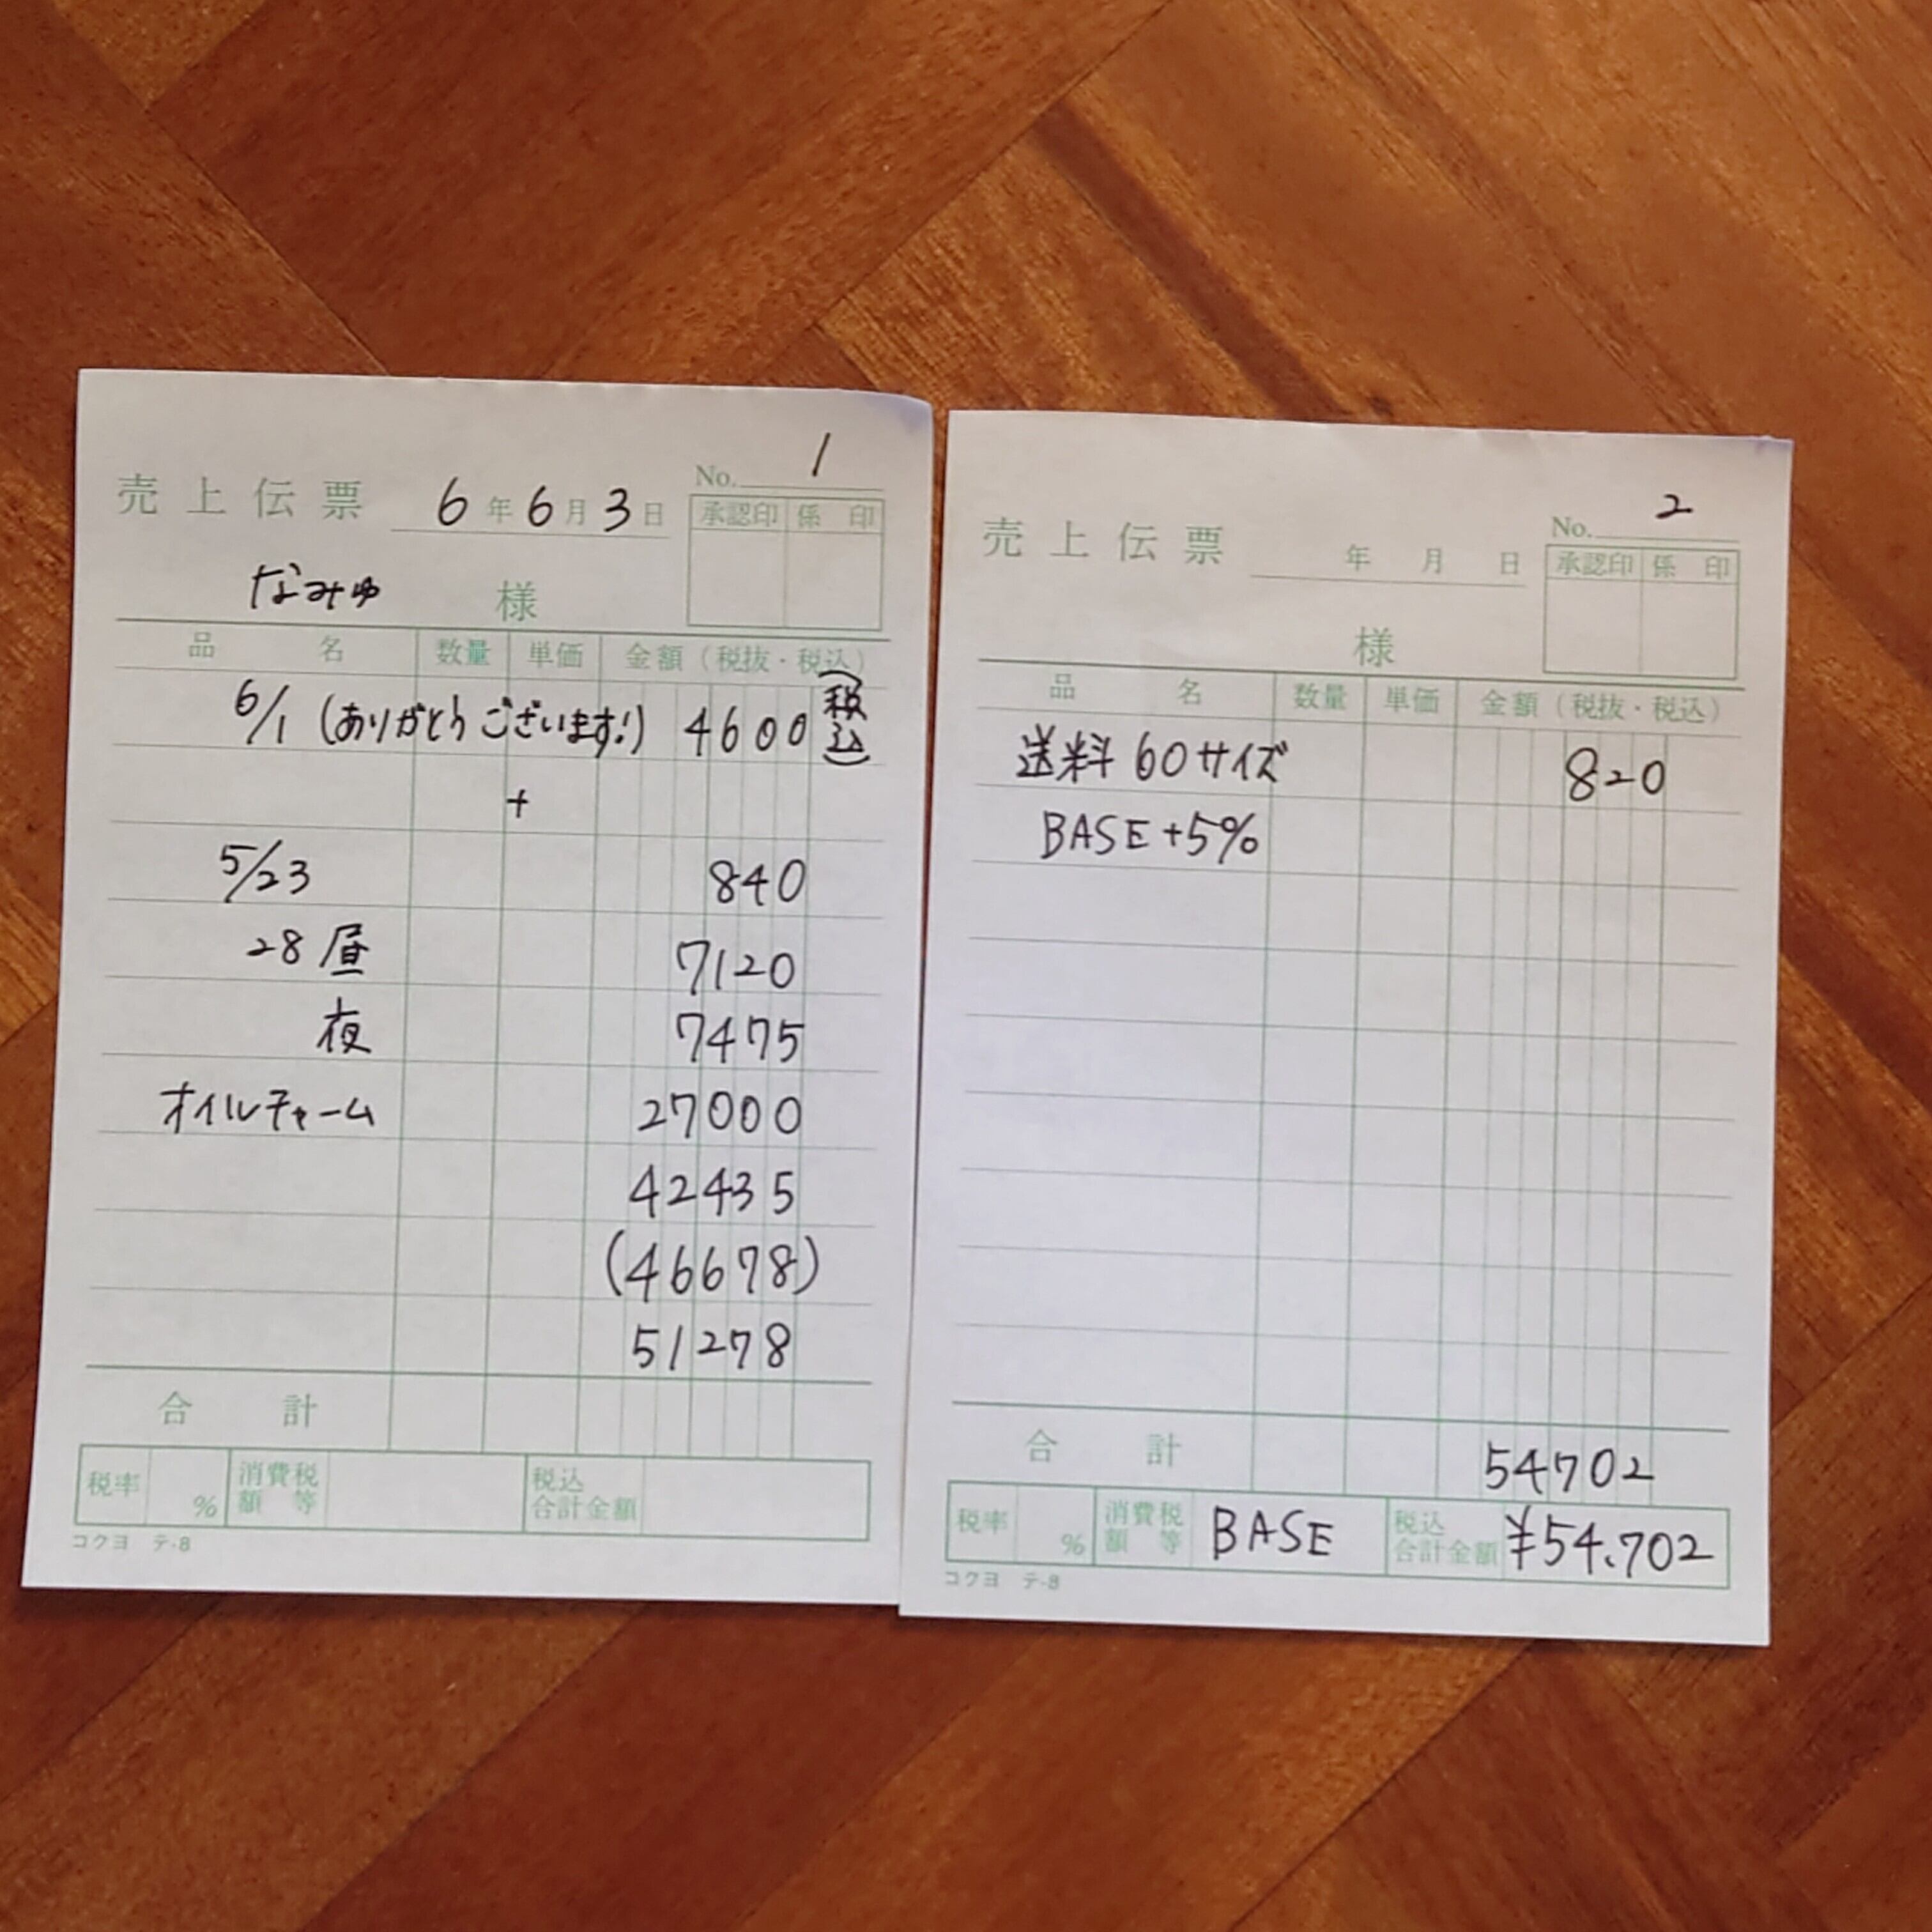 売上伝票 6年6月3日 No. 1
承認印 係印
なみゅ 様
品名 数量 単価 金額(税抜・税込)
6/1 (ありがとうございます!) 4600 (税込)
+
5/23 840
28 昼 7120
夜 7475
オイルチャーム 27000
42435
(46678)
51278
合計
税率 % 消費税額等 税込合計金額
コクヨ テ-8
売上伝票 年 月 日 No. 2
承認印 係印
様
品名 数量 単価 金額(税抜・税込)
送料 60サイズ 820
BASE +5%
合計 54702
税率 % 消費税額等 BASE 税込合計金額 ¥54.702
コクヨ テ-8